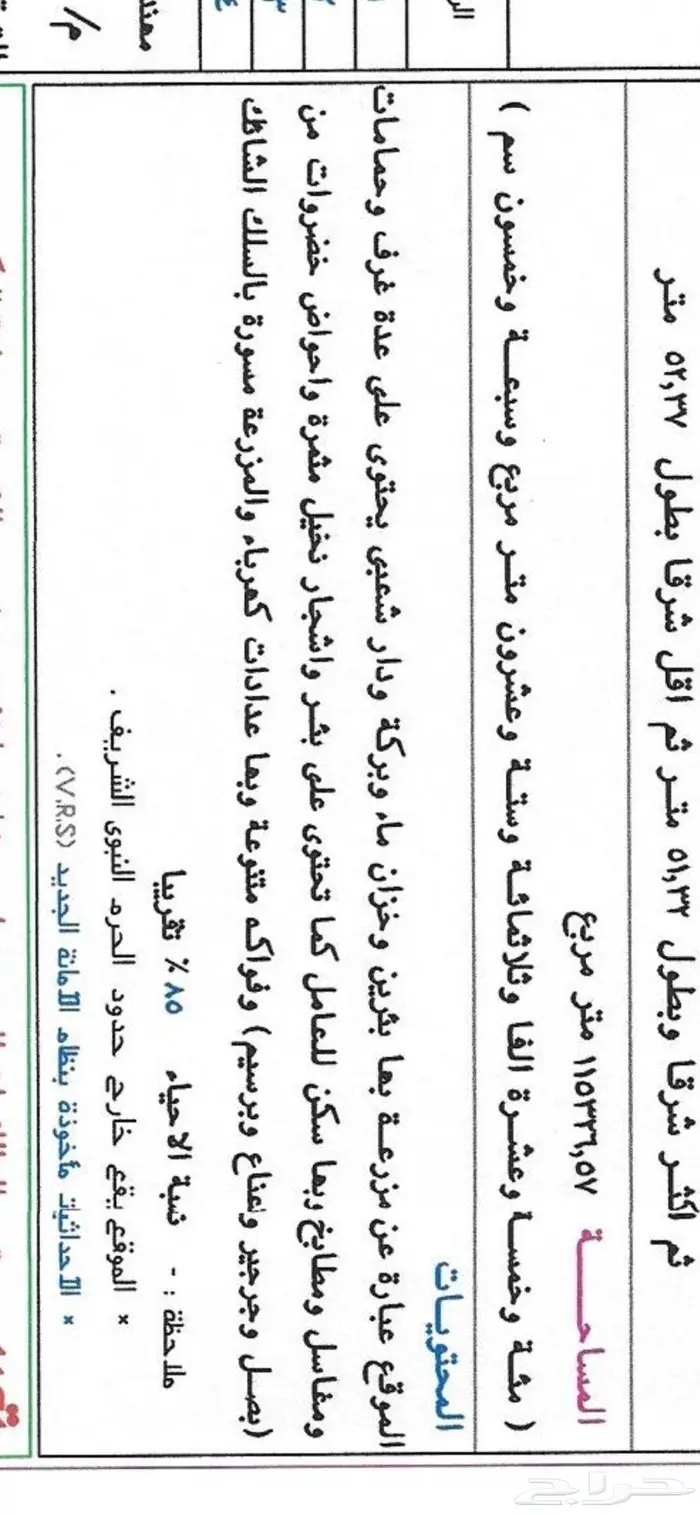 ثم اكثر شرقا وبطول ٥١,٣٢ متر ثم اقل شرقا بطول ٥٢,٣٧ متر
المساحة ١١٥٣٢٦,٥٧ متر مربع
( مئة وخمسة وعشرة الفا وثلاثمائة وستة وعشرون متر مربع وسبعة وخمسون سم )
المحتويات
الموقع عبارة عن مزرعة بها بئرين وخزان ماء وبركة ودار شعبي يحتوى على عدة غرف وحمامات
ومغاسل ومطابخ وبها سكن للعامل كما تحتوى على بئر واشجار نخيل مثمرة واحواض خضروات من
(بصل وجرجير ونعناع وبرسيم) وفواكه متنوعة وبها عدادات كهرباء والمزرعة مسورة بالسلك الشائك
ملاحظة : - نسبة الاحياء ٨٥ % تقريبا
× الموقع يقع خارج حدود الحرم النبوى الشريف .
× الاحداثيات مأخوذة بنظام الامانة الجديد (V.R.S) .
حراج